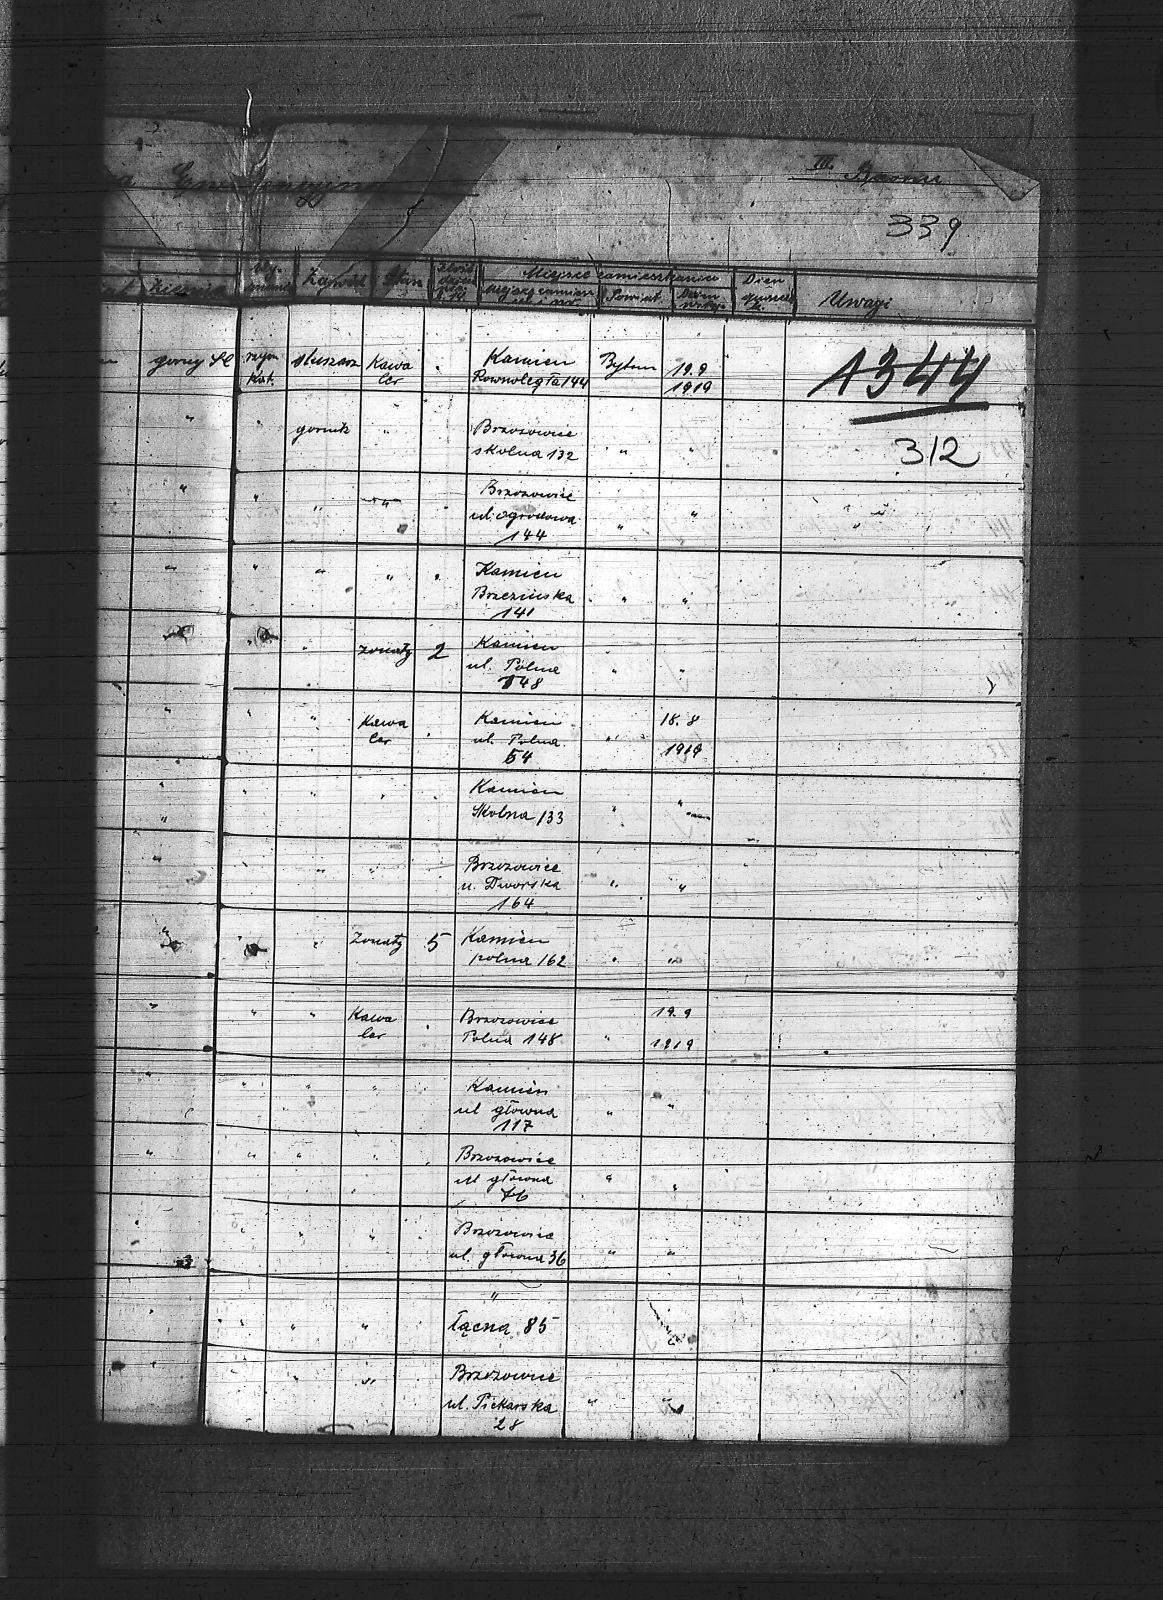 III. Baonu
339
Ziemia Zawód Stan Miejsce zamieszkania Dzień Uwagi
Powiat
górny Śl rzym kat. slusarz Kawa ler Kamien Rownoległa 144 Bytom 19.9 1919 1344
" " gornik " Brzozowice skolna 132 " " 312
" " " " Brzozowice ul. Ogrodowa 144 " "
" " " " Kamien Brzezinska 141 " "
" " zonaty 2 Kamien ul. Polna 148 " "
" " " Kawa ler Kamien ul. Polna 54 " 18.8 1919
" " " " Kamien Skolna 133 " "
" " " Brzozowice u. Dworska 164 " "
" " Zonaty 5 Kamien polna 162 " "
" " " Kawa ler Brzozowice Polna 148 " 19.9 1919
" " " " Kamien ul główna 117 " "
" " " " Brzozowice ul główna " "
" " " Brzozowice ul. główna 36 " "
" " " " " łączna 85
" " Brzozowice ul. Piekarska 28 " "